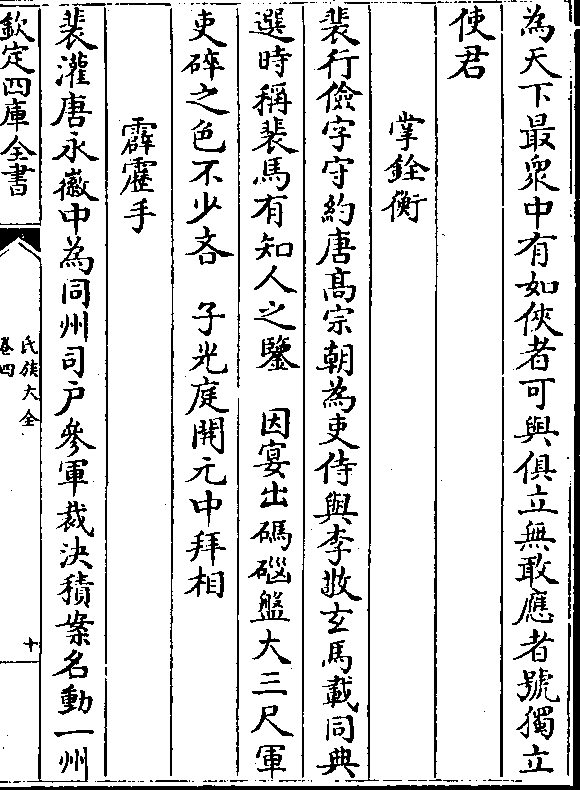 為天下最衆中有如俠者可與俱立無敢應者號獨立
使君
掌銓衡
裴行儉字守約唐髙宗朝為吏侍與李敬玄馬載同典
選時稱裴馬有知人之鑒　因宴出碼碯盤大三尺軍
吏碎之色不少吝　子光庭開元中拜相
霹靂手
裴灌唐永徽中為同州司戶參軍裁決積案名動一州
欽定四庫全書
氏族大全
卷四
十